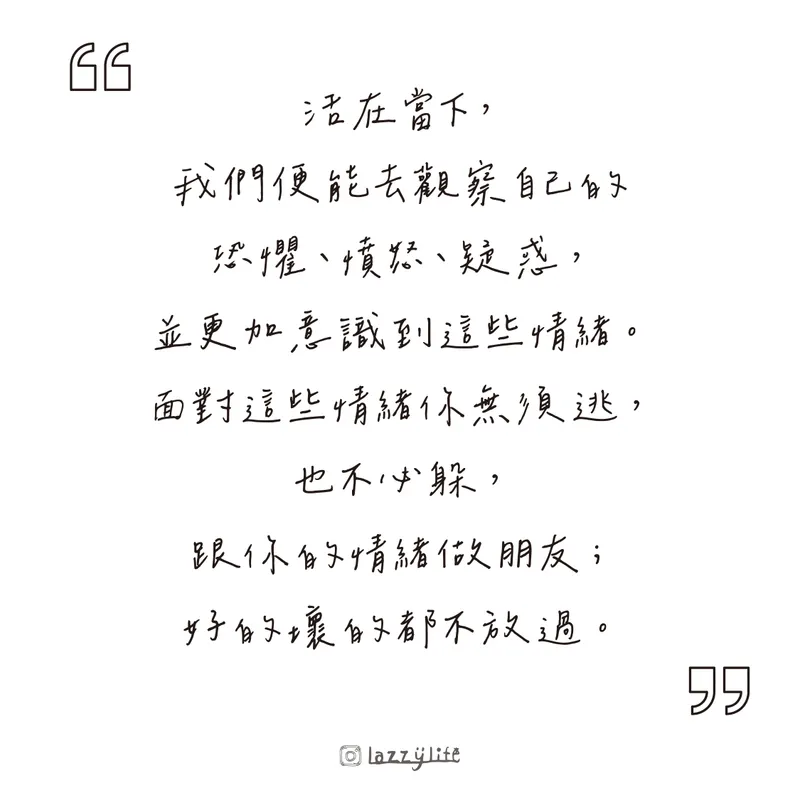 活在當下，
我們便能去觀察自己的
恐懼、憤怒、疑惑，
並更加意識到這些情緒。
面對這些情緒你無須逃，
也不必躲，
跟你的情緒做朋友；
好的壞的都不放過。
lazzylife